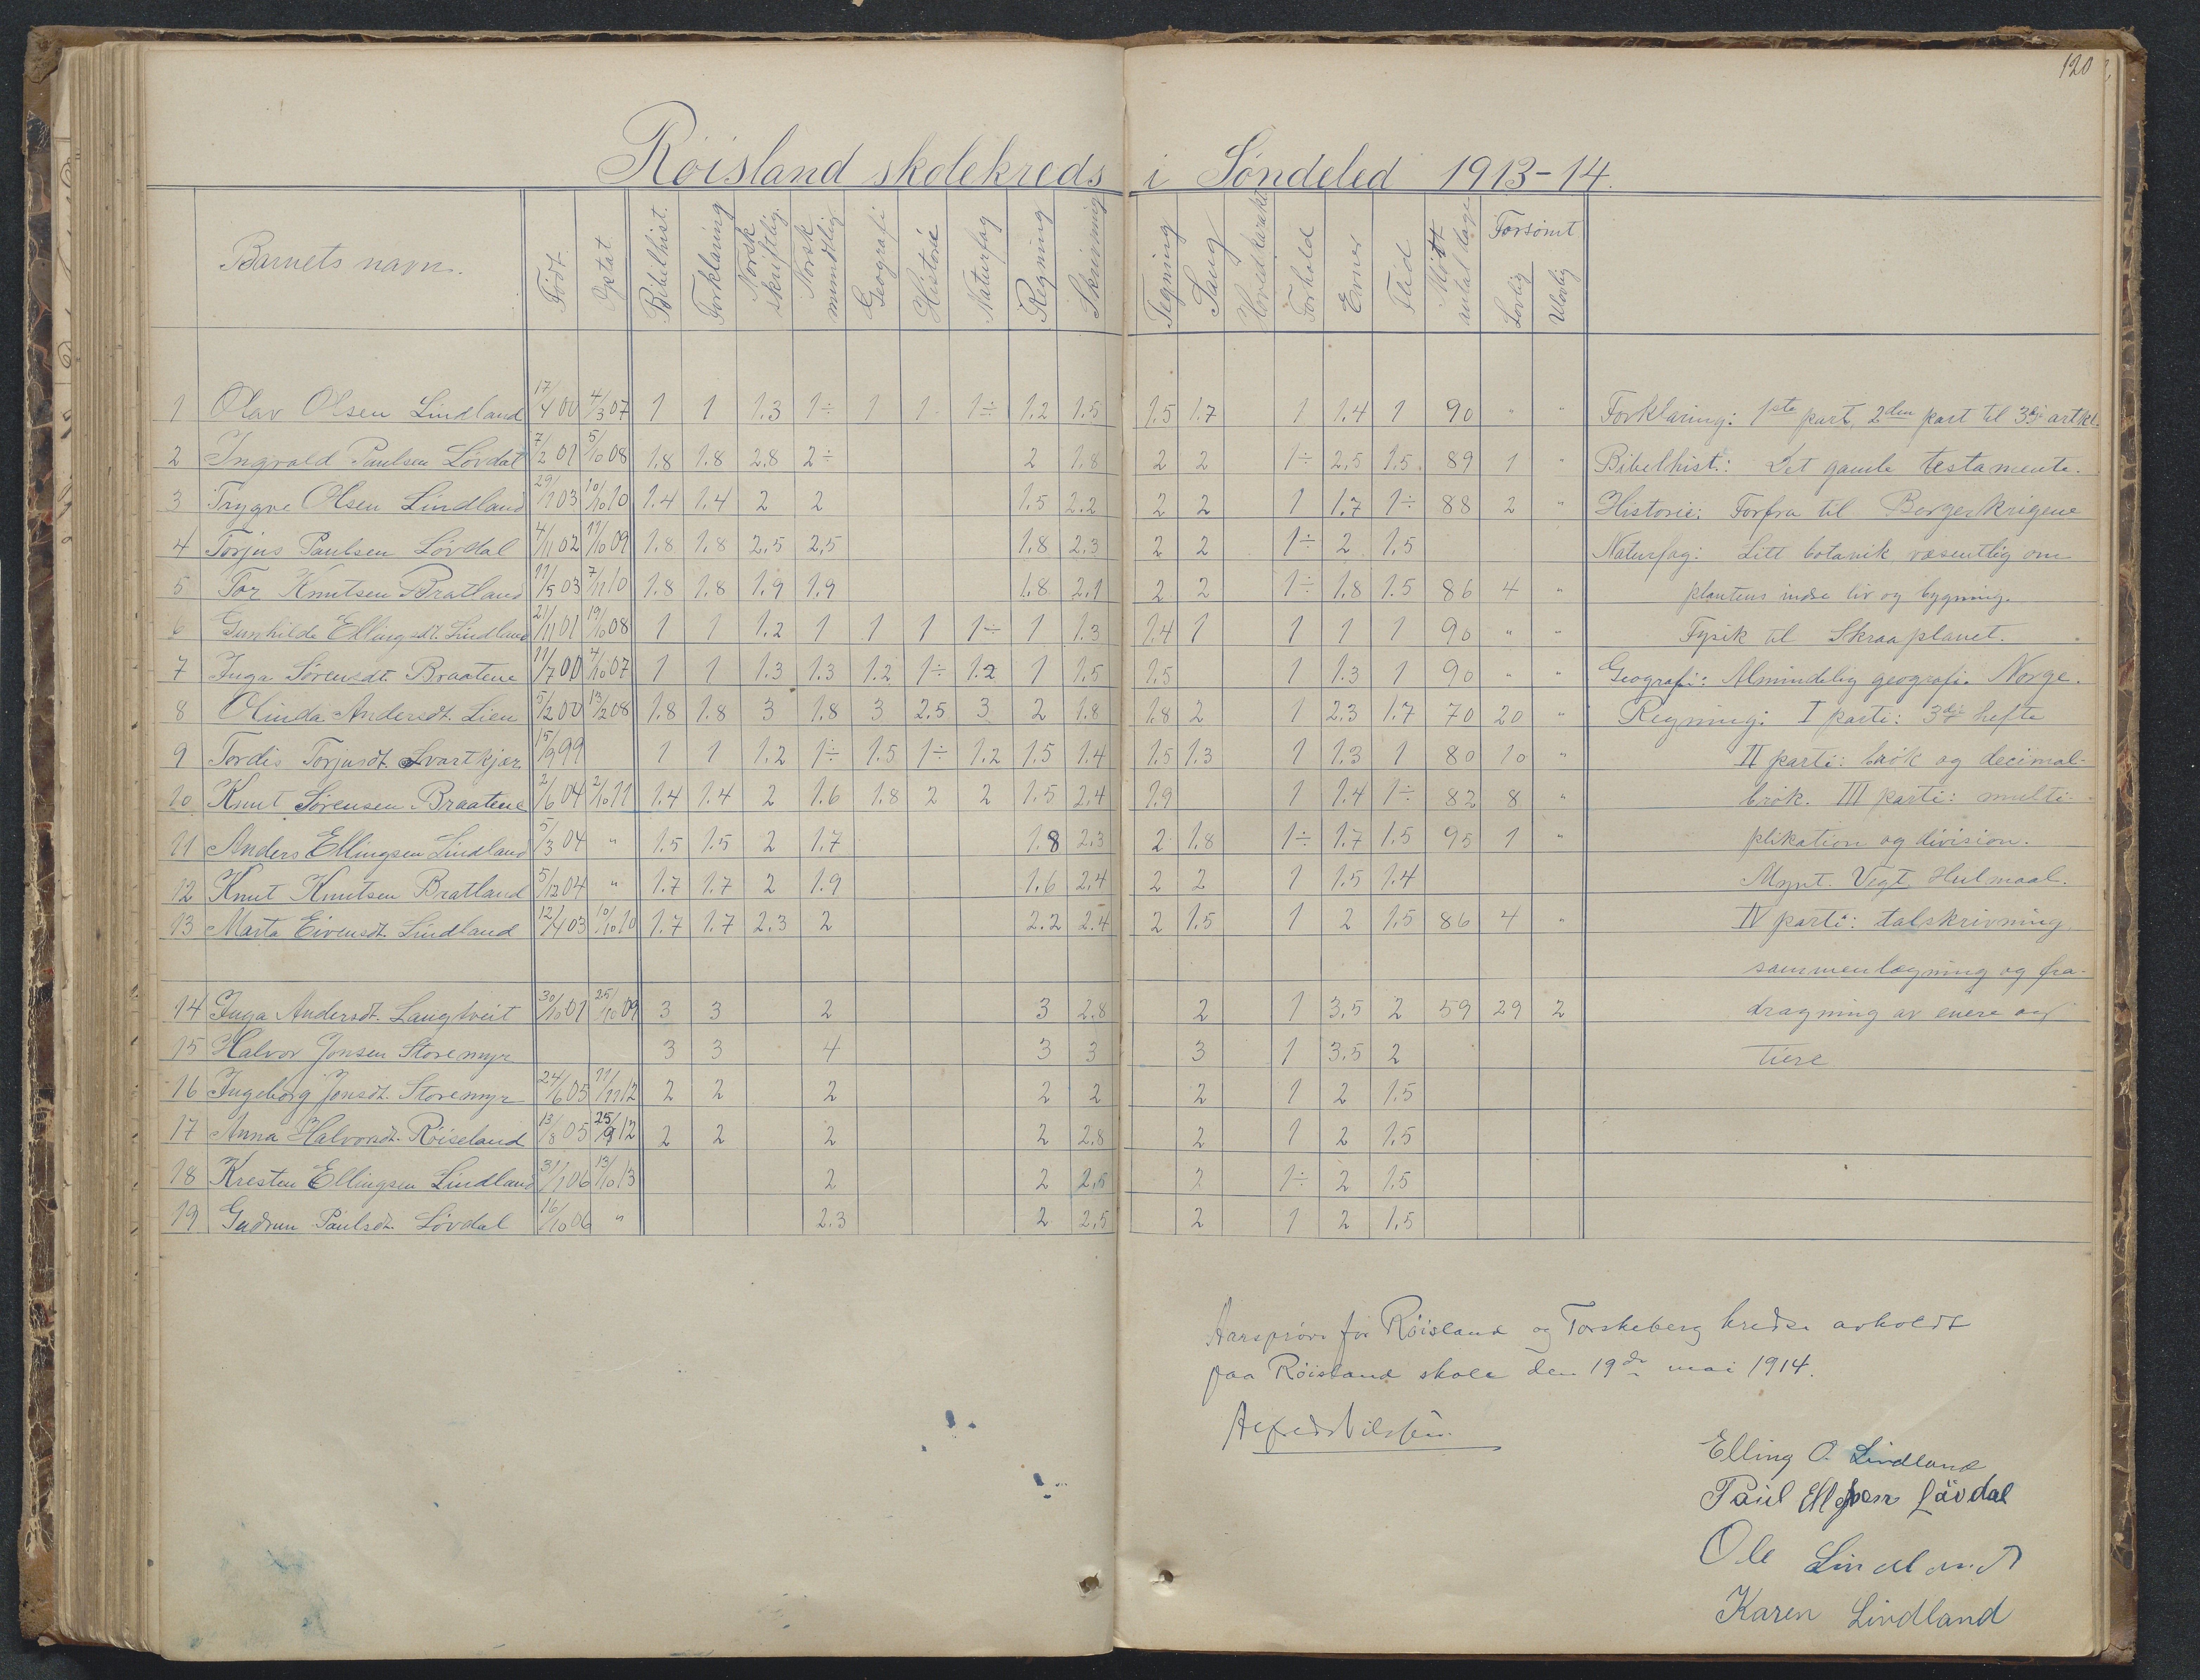 120
Röisland skolekreds i Söndeled 1913-14.
Barnets navn. Födt Optat Bibelhist. Forklaring Norsk skriftlig. Norsk mundtlig Geografi Historie Naturfag Regning Skrivning Tegning Sang Hovedkarakt. Forhold Evner Flid Mött antal dage Forsömt Lovlig Ulovlig
1 Olav Olsen Lindland 17/4 00 4/3 07 1 1 1.3 1÷ 1 1 1÷ 1.2 1.5 1.5 1.7 1 1.4 1 90 " " Forklaring: 1ste part, 2den part til 3dj artkl.
2 Ingvald Paulsen Lövdal 7/2 01 5/10 08 1.8 1.8 2.8 2÷ 2 1.8 2 2 1÷ 2.5 1.5 89 1 " Bibelhist.: Det gamle testamente.
3 Trygve Olsen Lindland 29/1 03 10/10 10 1.4 1.4 2 2 1.5 2.2 2 2 1 1.7 1÷ 88 2 " Historie: Forfra til Borgerkrigene
4 Torjus Paulsen Lövdal 4/11 02 11/10 09 1.8 1.8 2.5 2,5 1.8 2.3 2 2 1÷ 2 1.5 Naturfag: Litt botanik væsentlig om
5 Tor Knutsen Bratland 11/5 03 7/11 10 1.8 1.8 1.9 1.9 1.8 2.1 2 2 1÷ 1.8 1.5 86 4 " plantens indre liv og bygning.
6 Gunhilde Ellingsdt. Lindland 21/11 01 19/10 08 1 1 1.2 1 1 1 1÷ 1 1.3 1.4 1 1 1 1 90 " " Fysik til Skraaplanet.
7 Inga Sörensdt. Braatene 11/7 00 4/10 07 1 1 1.3 1.3 1.2 1÷ 1.2 1 1.5 1.5 1 1.3 1 90 " " Geografi: Almindelig geografi. Norge.
8 Olinda Andersdt. Lien 5/2 00 13/2 08 1.8 1.8 3 1.8 3 2.5 3 2 1.8 1.8 2 1 2.3 1.7 70 20 " Regning: I parti: 3dje hefte
9 Tordis Torjusdt. Svartkjær 15/9 99 1 1 1.2 1÷ 1.5 1÷ 1.2 1.5 1.4 1.5 1.3 1 1.3 1 80 10 " II parti: brök og decimal-
10 Knut Sörensen Braatene 2/6 04 2/10 11 1.4 1.4 2 1.6 1.8 2 2 1.5 2.4 1.9 1 1.4 1÷ 82 8 " brök. III parti: multi-
11 Anders Ellingsen Lindland 5/3 04 " 1.5 1.5 2 1.7 1.8 2.3 2 1.8 1÷ 1.7 1.5 95 1 " plikation og division.
12 Knut Knutsen Bratland 5/12 04 " 1.7 1.7 2 1.9 1.6 2.4 2 2 1 1.5 1.4 Mynt. Vegt. Hulmaal.
13 Marta Eivensdt. Lindland 12/1 03 10/10 10 1.7 1.7 2.3 2 2.2 2.4 2 1.5 1 2 1.5 86 4 " IV parti: talskrivning,
sammenlægning og fra-
14 Inga Andersdt. Langtveit 30/10 01 25/10 09 3 3 2 3 2.8 2 1 3.5 2 59 29 2 dragning av enere og
15 Halvor Jonsen Storemyr 3 3 4 3 3 3 1 3.5 2 tiere
16 Ingeborg Jonsdt. Storemyr 24/6 05 11/11 12 2 2 2 2 2 2 1 2 1.5
17 Anna Halvorsdt. Röiseland 13/8 05 25/9 12 2 2 2 2 2.8 2 1 2 1.5
18 Kresten Ellingsen Lindland 31/1 06 13/10 13 2 2 2,5 2 1÷ 2 1.5
19 Gudrun Paulsdt. Lövdal 16/10 06 " 2.3 2 2,5 2 1 2 1.5
Aarspröve for Röisland og Torskeberg kredse avholdt
paa Röisland skole den 19de mai 1914.
Alfred Nilssen.
Elling O. Lindland
Paul Ellefsen Lövdal
Ole Lindland
Karen Lindland